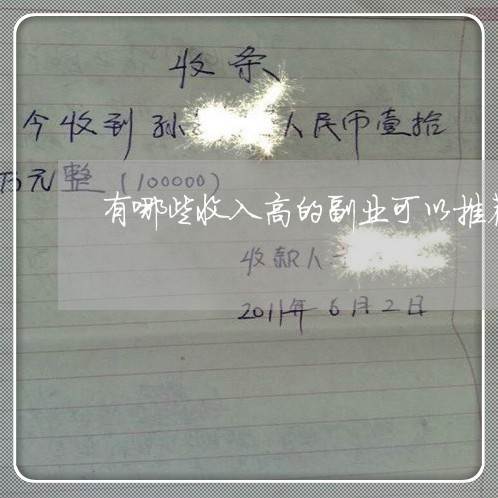 收条
今收到孙 人民币壹拾
万元整(100000)
有哪些收入高的副业可以推荐
收款人
2011年6月2日